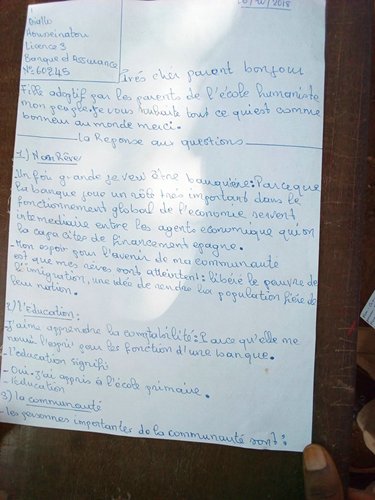 Diallo
Licence 3
Banque d'Assurance
N° 60245
Très cher parent bonjour
Fille adoptif par les parents de l'école humaniste
mon peuple. Je vous souhaite tout ce qui est comme
bonheur au monde merci.
La Reponse aux questions
1) Mon Rêve
Un foi grande je veu être banquière: Parce que
la banque joue un rôle très important dans le
fonctionnement global de l'economie servent
intermediaire entre les agents economique qui on
la capacites de financement epagne.
- Mon espoir pour l'avenir de ma communauté
est que mes rêves sont atteintent: libéré le peuvre de
l'imigration, une idée de rendre la population fière de
leur nation.
2) l'Education:
- J'aime apprendre la comptabilité: Parce qu'elle me
nouri l'esprit pour les fonction d'une banque.
- l'education signifi
- Oui j'ai appris à l'école primaire.
- l'éducation
3) la communauté
- les personnes importantes de la communauté sont: